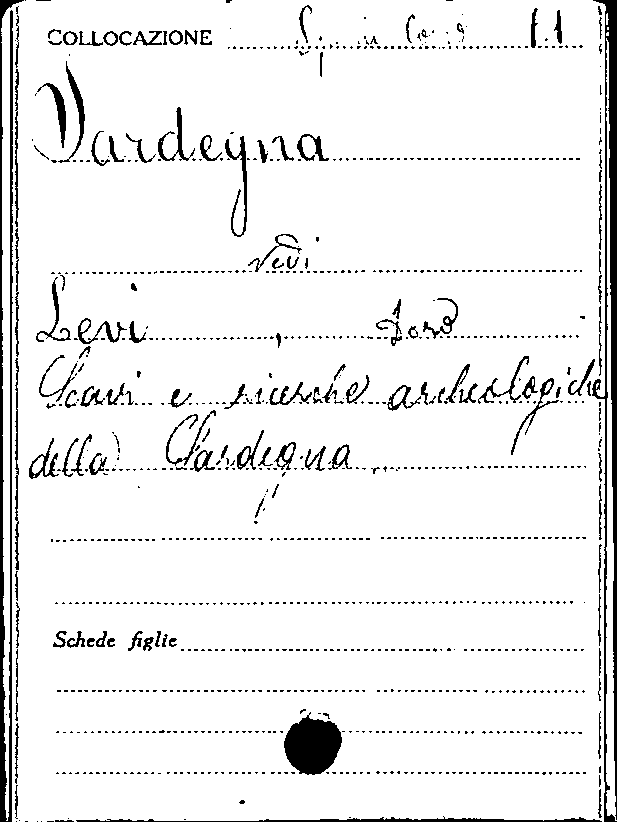 COLLOCAZIONE
Sardegna
vedi
Levi, Doro
Scavi e ricerche archeologiche
della Sardegna.
Schede figlie